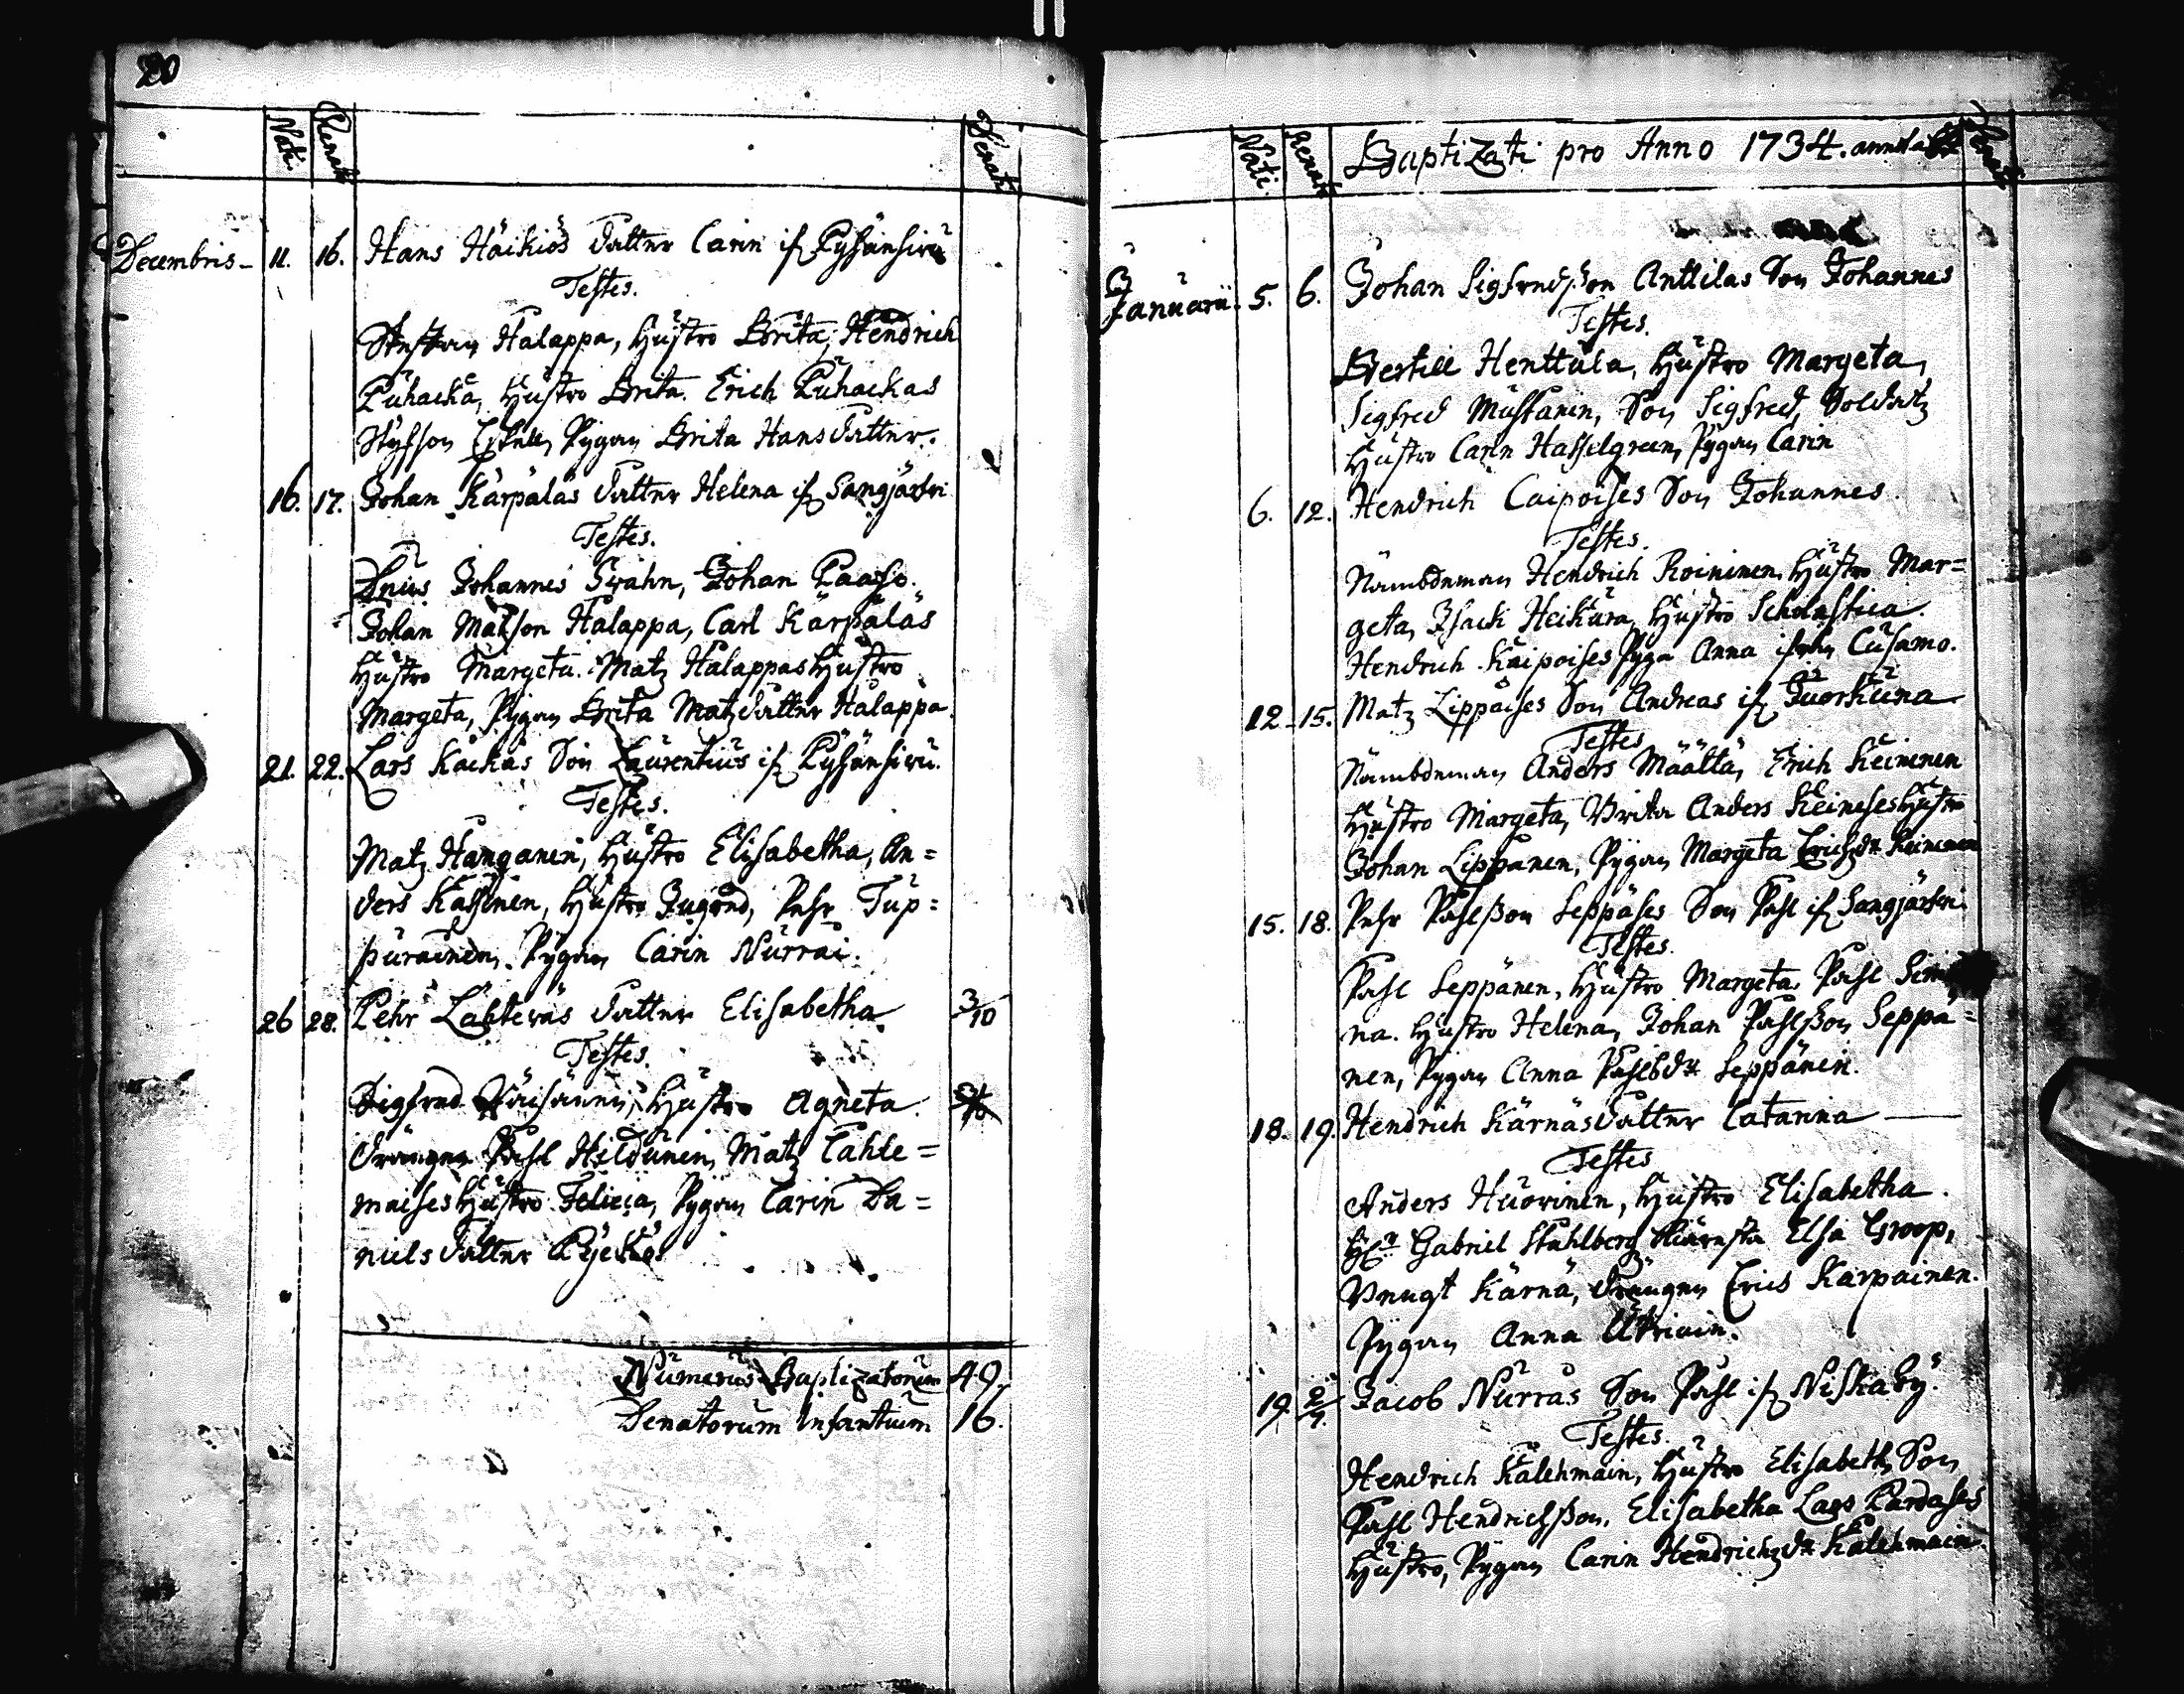 20
Nati. Renati Denati
Decembris - 11. 16. Hans Häikiös dotter Carin if Pyhänsivu
Testes.
Staffan Halappa, hustro Brita, Hendrich
Puhacka, hustro Brita. Erich Puhackas
Styfson Pygan Brita Hansdotter.
16. 17. Johan Karpälas dotter Helena if Sangjärfvi
Testes.
Dnus Johannes Svahn, Johan Paaso.
Johan Matsson Halappa, Carl Karpälas
hustro Margeta. Matz Halappas hustro
Margeta, Pygan Brita Matzdotter Halappa.
21. 22. Lars Kackas Son Laurentius if Pyhänsivu.
Testes.
Matz Hanganen, hustro Elisabetha, An=
ders Kassinen, hustro Ingrid, Pehr Tup=
purainen, Pygan Carin Nurrai.
26 28. Pehr Lahteras dotter Elisabetha 3/10
Testes.
Sigfred Väisänen, hustro Agneta.
drängen Påhl Hildunen, Matz Tahle=
maises hustro Felicia, Pygan Carin Da=
niels dotter
Numerus Baptizatorum 49.
Denatorum Infantium 16.
Nati. Renati Baptizati pro Anno 1734.
Januarii. 5. 6. Johan Sigfredsson Anttilas Son Johannes
Testes.
Bertill Henttula, hustro Margeta,
Sigfred Mustanin, Son Sigfred, Soldatz
hustro Carin Hasselgreen, Pygan Carin
6. 12. Hendrich Caipoises Son Johannes
Testes.
Nämbdeman Hendrich Roininen, hustro Mar=
geta, Isack Heikura, hustro Scholastica.
Hendrich Kaipoises Pyga Anna Cusamo.
12. 15. Matz Lippoises Son Andreas if Juorkuna
Testes
Nämbdeman Anders Määttä, Erich Keininen
hustro Margeta, Anders Keineses hustro
Johan Lippanen, Pygan Margeta Erichzdr Keininen
15. 18. Pehr Påhlsson Seppäses Son Påhl if Sangjärfvi
Testes.
Påhl Seppänen, hustro Margeta, Påhl
na. hustro Helena, Johan Påhlsson Seppä=
nen, Pygan Anna Påhlsdr Seppänen.
18. 19. Hendrich Kärnäs dotter Catarina
Testes
Anders Huovinen, hustro Elisabetha.
Hr Gabriel Stahlberg Elsa Groop,
Bengt Kärnä, drängen Erics Karpainen.
Pygan Anna
19. 2/4. Jacob Nurras Son Påhl if Niskaby.
Testes.
Hendrich Kalehmain, hustro Elisabeth, Son
Påhl Hendrichsson, Elisabetha Lars Pardases
hustro, Pygan Carin Hendrichzdr Kalehmain